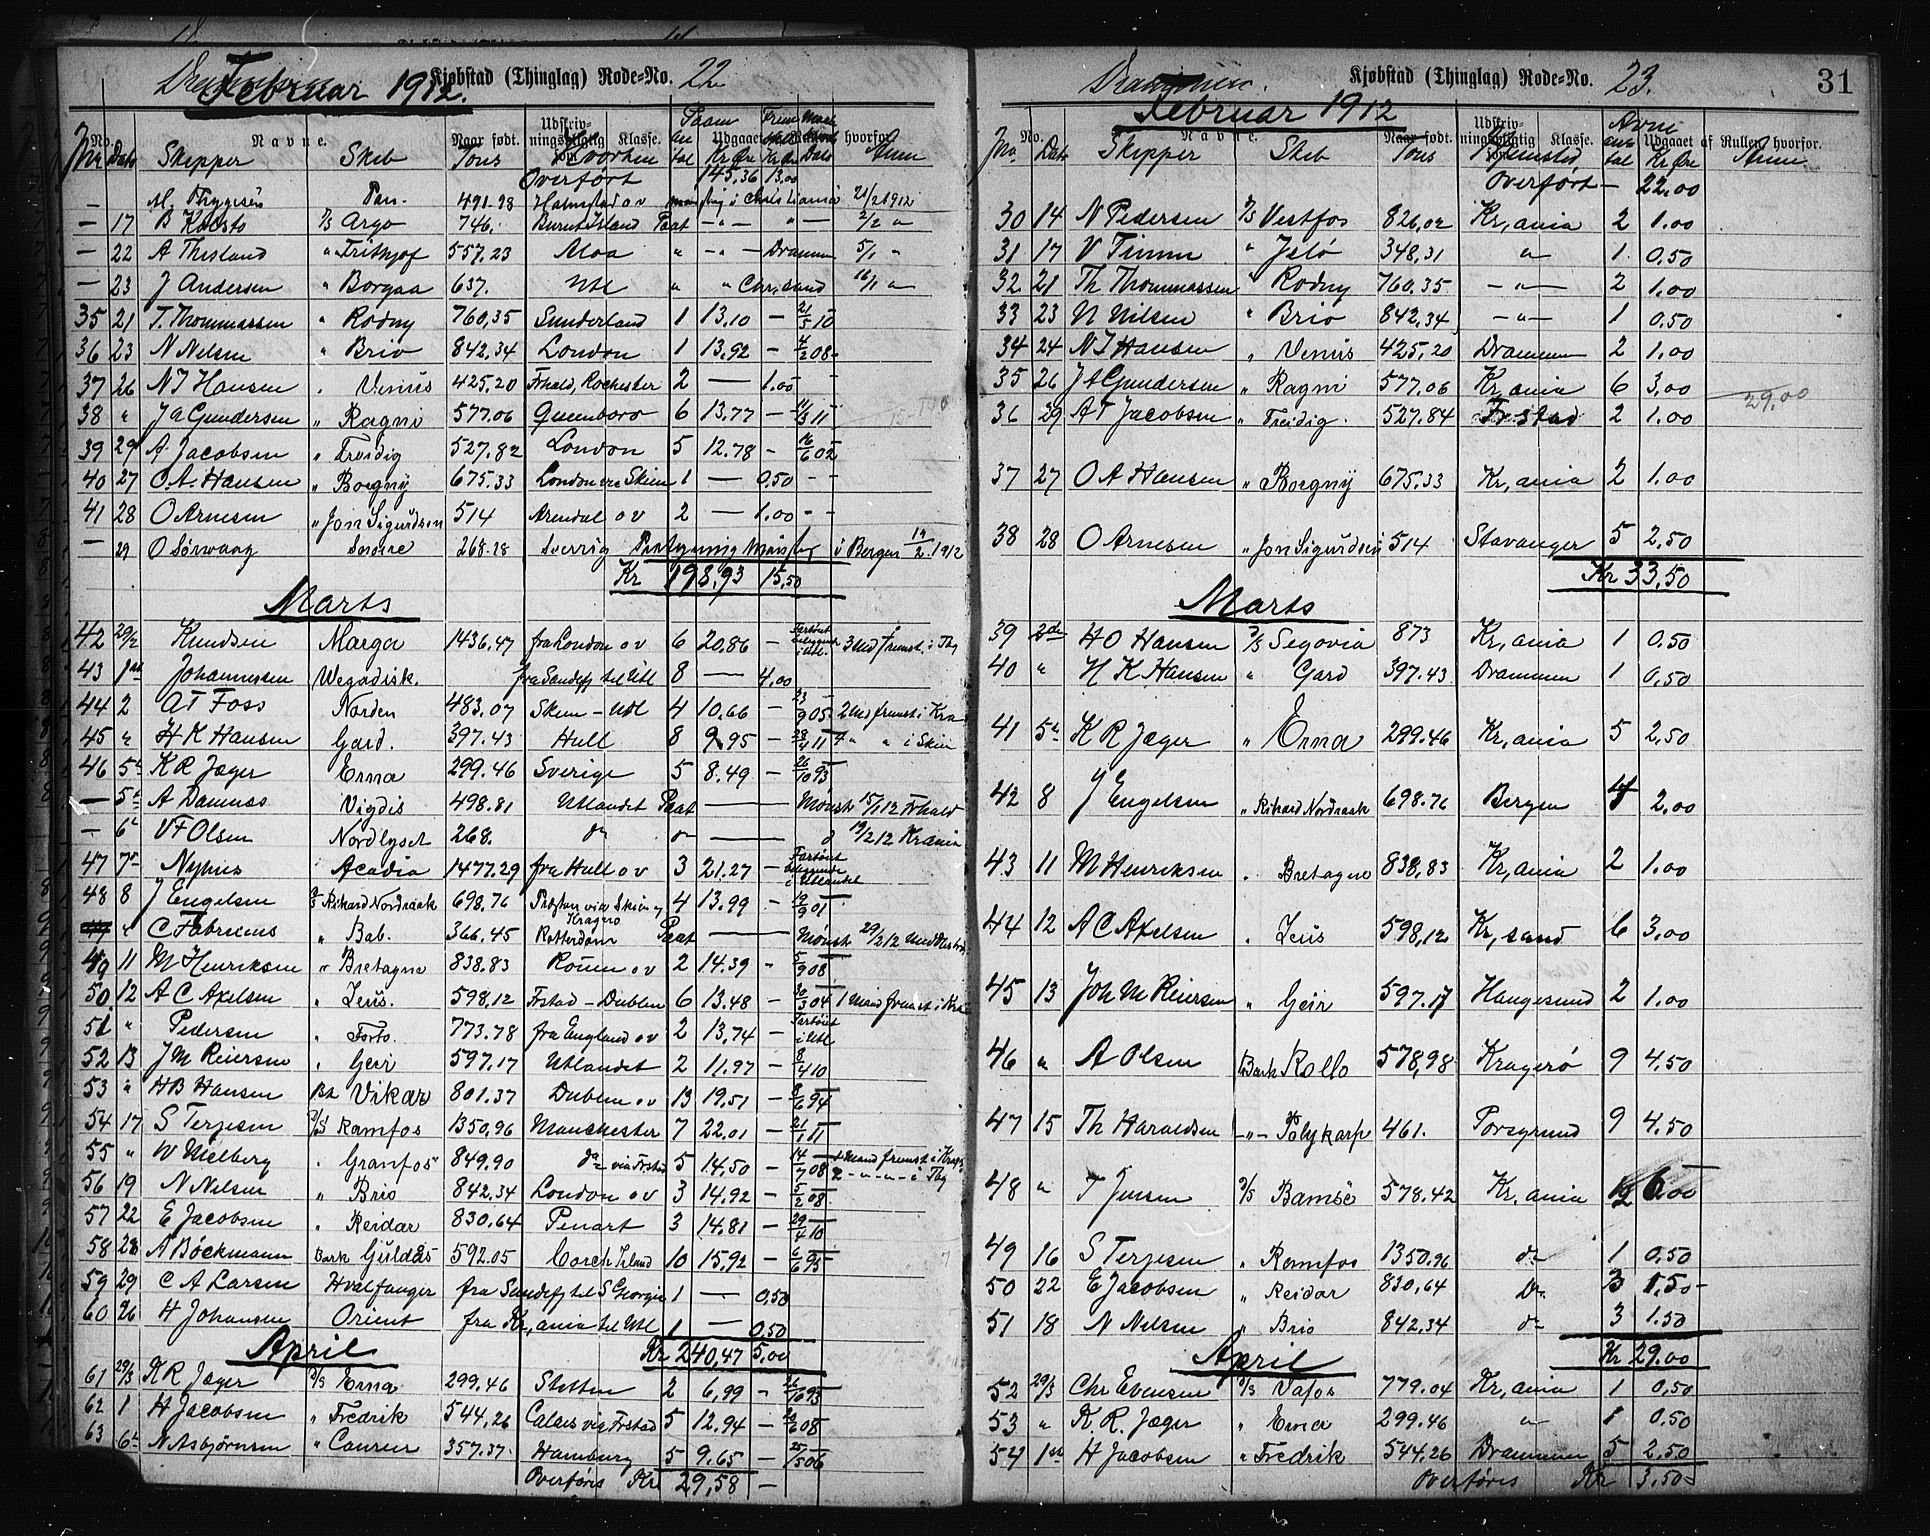 Februar 1912. Kjøbstad (Thinglag) Rode-No. 22
No. Navne. Naar født. Udskriv-ningspligtig Klasse. Udgaaet hvorfor.
No Dato Skipper Skib Tons Hvorhen Antal Kr Øre Kr Øre Dato Anm
Overført 145,36 13,00
— M. Thygesen Pan. 491.28 Halmstad o v mønstrig i Christiania 21/2 1912
— 17 B Kolsto D/S Argo 746. Burnt Island Paat — " — " — 2/2 "
— 22 A Thisland " Frithjof 557.23 Moa " — " — Drammen 5/1 "
— 23 J Andersen " Borgaa 637. Utl " " Chr, sand 16/1 "
35 21 T. Thommassen " Rodny 760,35 Sunderland 1 13,10 — 21/5 10
36 23 N Nelsen " Brio 842,34 London 1 13,92 — 4/2 08
37 26 N J Hansen " Venus 425.20 Frhald, Rochester 2 — 1.00 —
38 " J A Gundersen " Ragni 577.06 Queenboro 6 13.77 — 11/3 11
39 29 A Jacobsen " Freidig 527.82 London 5 12.78 — 16/6 02
40 27 O. A. Hansen " Borgny 675.33 London via Skien 1 — 0,50 — —
41 28 O Arnesen " Jon Sigurdsen 514 Arendal o v 2 — 1.00 — —
— 29 O Sørvaag 268.28 Sverrig i Bergen 19/2 1912
Kr 198,93 15,50
Marts
42 29/2 Knudsen Marga 1436.47 fra London o v 6 20,86 — 3 Md frmst. i Tbg
43 1ste Johannesen Wegadisk. fra Sandefj til Utl 8 — 4,00
44 2 A T Foss Norden 483.07 Skien — Utl 4 10,66 — 23/9 05 2 Md frmst i Kra
45 " H K Hansen Gard. 397.43 Hull 8 9.95 — 28/4 11 4 " " i Skien
46 5te K R Jæger Erna 299.46 Sverige 5 8.49 — 26/10 93
— 5te A Damnas Vigdis 498.81 Utlandet Paat — Mønst 15/1 12 Frhald
— 6te V F Olsen Nordlyset 268. do do — d 19/2 12 Kr ania
47 7de Nyhus Acadia 1477.29 fra Hull o v 3 21.27 — Fartøiet beliggende i Utlandet
48 8 J Engelsen D/S Rikard Nordraak 698.76 via Skien og Kragerø 4 13.99 — 19/9 01
" C Fabricius " Bab. 366.45 Rotterdam Paat — Mønst 29/2 12
49 11 M Henriksen " Bretagne 838.83 Rouen o v 2 14.39 — 5/9 08
50 12 A C Axelsen " Zeus. 598,12 Frstad — Dublin 6 13.48 — 30/3 04 1 Mand frmst i Kra
51 " Pedersen " Forto. 773.78 fra England o v 2 13,74 — Fartøiet i Utl
52 13 J M Reiersen " Geir 597.17 Utlandet 2 11.97 — 8/4 10
53 " H B Hansen Bk Vikar 801.37 Dublin o v 13 19,51 — 8/6 94
54 17 S Terjesen D/S Ramfos 1350,96 Manchester 7 22.01 — 21/1 11
55 " W Melberg " Granfos 849.90 do via Frstad 5 14,50 — 14/7 08 1 Mand frmst i Krag 2 — " — " — i Tbg
56 19 N Nelsen " Brio 842,34 London o v 3 14.92 — 5/2 08
57 22 E Jacobsen " Reidar 830,64 Penart 3 14.81 — 29/4 10
58 28 A Bøckmann Bark Guldaas 592.05 Corck Irland 10 15,92 — 6/6 95
59 29 C A Larsen Hvalfanger fra Sandefj til S Georgia 1 — 0,50
60 26 H Johansen Orient fra Kr, ania til Utl 1 — 0,50
Kr 240,47 5,00
April
61 29/3 K R Jæger D/S Erna 299.46 Stettin 2 6,99 — 26/10 93
62 1 H Jacobsen " Fredrik 544,26 Calais via Frstad 5 12.94 — 20/6 08
63 6te N Asbjørnsen " Caurier 357.37. Hamburg 5 9.65 — 25/5 06
Overføres Kr 29,58 —
Drammen. Kjøbstad (Thinglag) Rode-No. 23. 31
Februar 1912
No. Navne. Naar født. Udskriv-ningspligtig Klasse. Udgaaet af Rullen, hvorfor.
No Dat Skipper Skib Tons Hjemsted Antal Kr Øre Anm
Overført — 22.00
30 14 N Pedersen D/S Vestfos 826,02 Kr, ania 2 1.00
31 17 V Timm " Jslø 348,31 " 1 0.50
32 21 Th Thommassen " Rodny 760.35 — " — 2 1.00
33 23 N Nilsen " Brio 842,34 — " — 1 0.50
34 24 N J Hansen " Venus 425,20 Drammen 2 1.00
35 26 J A Gundersen " Ragni 577.06 Kr, ania 6 3.00
29.00
36 29 A T Jacobsen " Freidig. 527.84 Frstad 2 1.00
37 27 O A Hansen " Borgny 675.33 Kr, ania 2 1.00
38 28 O Arnesen " Jon Sigurdsen 514 Stavanger 5 2.50
Kr 33,50
Marts
39 2de H O Hansen D/S Segovia 873 Kr, ania 1 0.50
40 " H K Hansen " Gard 397.43 Drammen 1 0,50
41 5te K R Jæger " Erna 299.46 Kr, ania 5 2,50
42 8 J Engelsen " Rikard Nordraak 698.76 Bergen 4 2.00
43 11 M Henriksen " Bretagne 838,83 Kr, ania 2 1.00
44 12 A C Axelsen " Zeus 598,12 Kr, sand 6 3,00
45 13 Joh M Reiersen " Geir 597.17 Haugesund 2 1.00
46 " A Olsen Bark Rollo 578,98 Kragerø 9 4.50
47 15 Th Haraldsen — " — Polykarp 461. Porsgrund 9 4.50
48 " T Jensen D/S Bamse 578.42 Kr, ania 12 6.00
49 16 S Terjesen " Ramfos 1350.96 do 1 0.50
50 22 E Jacobsen " Reidar 830,64 Do 3 1.50
51 18 N Nelsen " Brio 842.34 do 3 1.50
Kr 29.00
April
52 29/3 Chr Evensen D/S Vafos 779.04 Kr, ania 1 0,50
53 " K. R. Jæger " Erna 299.46 " 1 0.50
54 1ste H Jacobsen " Fredrik 544.26 Drammen 5 2.50
Overføres Kr 3.50